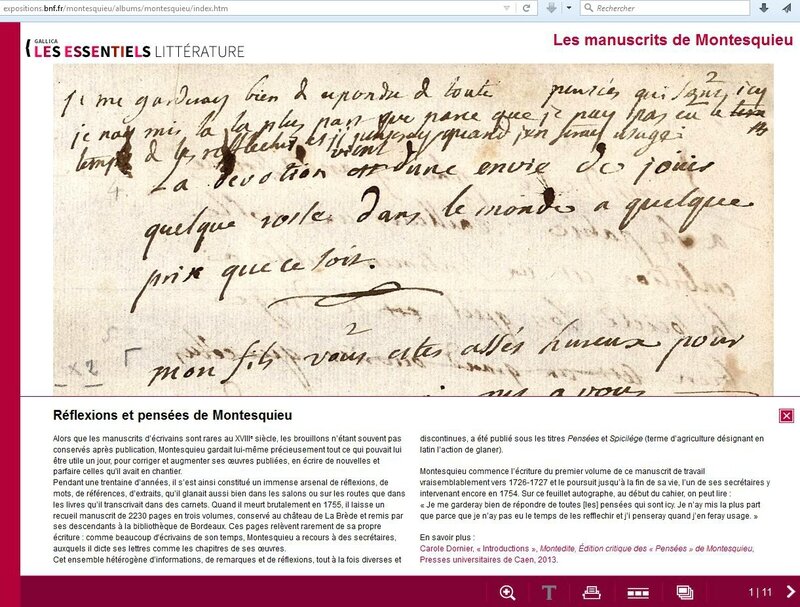 expositions.bnf.fr/montesquieu/albums/montesquieu/index.htm
Rechercher
GALLICA
LES ESSENTIELS LITTÉRATURE
Les manuscrits de Montesquieu
je me garderay bien de repondre de toute pensées qui sont icy
je nay mis la la plus part que parce que je nay pas eu le
temps de les reflechir et j'y penseray quand j'en feray usage
4
La devotion vient d'une envie de jouir
quelque rosle dans le monde a quelque
prix que ce soit.
2
mon fils vous estes assés hureux pour
a vous
x 2
Réflexions et pensées de Montesquieu
Alors que les manuscrits d'écrivains sont rares au XVIIIe siècle, les brouillons n'étant souvent pas
conservés après publication, Montesquieu gardait lui-même précieusement tout ce qui pouvait lui
être utile un jour, pour corriger et augmenter ses œuvres publiées, en écrire de nouvelles et
parfaire celles qu'il avait en chantier.
Pendant une trentaine d'années, il s'est ainsi constitué un immense arsenal de réflexions, de
mots, de références, d'extraits, qu'il glanait aussi bien dans les salons ou sur les routes que dans
les livres qu'il transcrivait dans des carnets. Quand il meurt brutalement en 1755, il laisse un
recueil manuscrit de 2230 pages en trois volumes, conservé au château de La Brède et remis par
ses descendants à la bibliothèque de Bordeaux. Ces pages relèvent rarement de sa propre
écriture : comme beaucoup d'écrivains de son temps, Montesquieu a recours à des secrétaires,
auxquels il dicte ses lettres comme les chapitres de ses œuvres.
Cet ensemble hétérogène d'informations, de remarques et de réflexions, tout à la fois diverses et
discontinues, a été publié sous les titres Pensées et Spicilège (terme d'agriculture désignant en
latin l'action de glaner).
Montesquieu commence l'écriture du premier volume de ce manuscrit de travail
vraisemblablement vers 1726-1727 et le poursuit jusqu'à la fin de sa vie, l'un de ses secrétaires y
intervenant encore en 1754. Sur ce feuillet autographe, au début du cahier, on peut lire :
« Je me garderay bien de répondre de toutes [les] pensées qui sont icy. Je n'ay mis la plus part
que parce que je n'ay pas eu le temps de les refflechir et j'i penseray quand j'en feray usage. »
En savoir plus :
Carole Dornier, « Introductions », Montedite, Édition critique des « Pensées » de Montesquieu,
Presses universitaires de Caen, 2013.
T
1 | 11